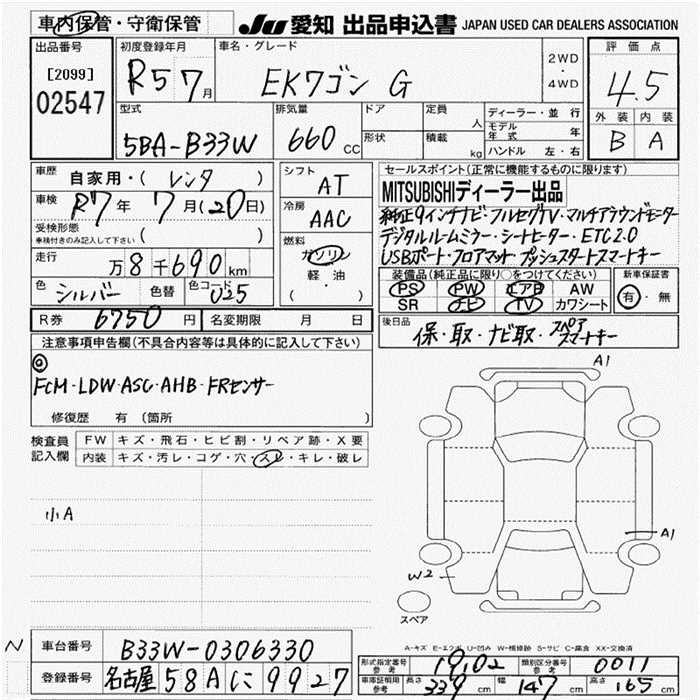 車内保管・守衛保管
JU 愛知 出品申込書 JAPAN USED CAR DEALERS ASSOCIATION
出品番号
[2099]
02547
初度登録年月
R5 7月
車名・グレード
EKワゴン G
2WD
・
4WD
評価点
4.5
外装 内装
B A
型式
5BA-B33W
排気量
660 CC
ドア
形状
定員 人
積載 kg
ディーラー・並行
モデル年式 年
ハンドル 左・右
車歴 自家用・( レンタ )
車検 R7年 7月(20日)
受検形態
※検付きのみ記入して下さい ( )
走行 万8千690km
色 シルバー 色替 色コード U25
シフト AT
冷房 AAC
燃料
ガソリン
軽油
( )
R券 6750円 名変期限 月 日
セールスポイント(正常に機能するものに限ります)
MITSUBISHIディーラー出品
純正9インチナビ・フルセグTV・マルチアラウンドモニター
デジタルルームミラー・シートヒーター・ETC2.0
USBポート・フロアマット・プッシュスタートスマートキー
装備品(純正品に限り○をつけてください)
PS PW エアB AW
SR ナビ TV カワシート
新車保証書
有・無
後日品
保・取・ナビ取・スペアスマートキー
注意事項申告欄(不具合内容等は具体的に記入して下さい)
◎
FCM・LDW・ASC・AHB・FRセンサー
修復歴 有 (箇所 )
検査員記入欄
FW キズ・飛石・ヒビ割・リペア跡・X要
内装 キズ・汚レ・コゲ・穴・スレ・キレ・破レ
小A
A1
A1
W2
スペア
A-キズ E-エクボ U-凹み W-補修跡 S-サビ C-腐食 XX-交換済
N
車台番号 B33W-0306330
登録番号 名古屋 58A に 9927
型式指定番号 参考 19102
類別区分番号 参考 0011
車庫証明用 参考 長さ 339cm 幅 147cm 高さ 165cm